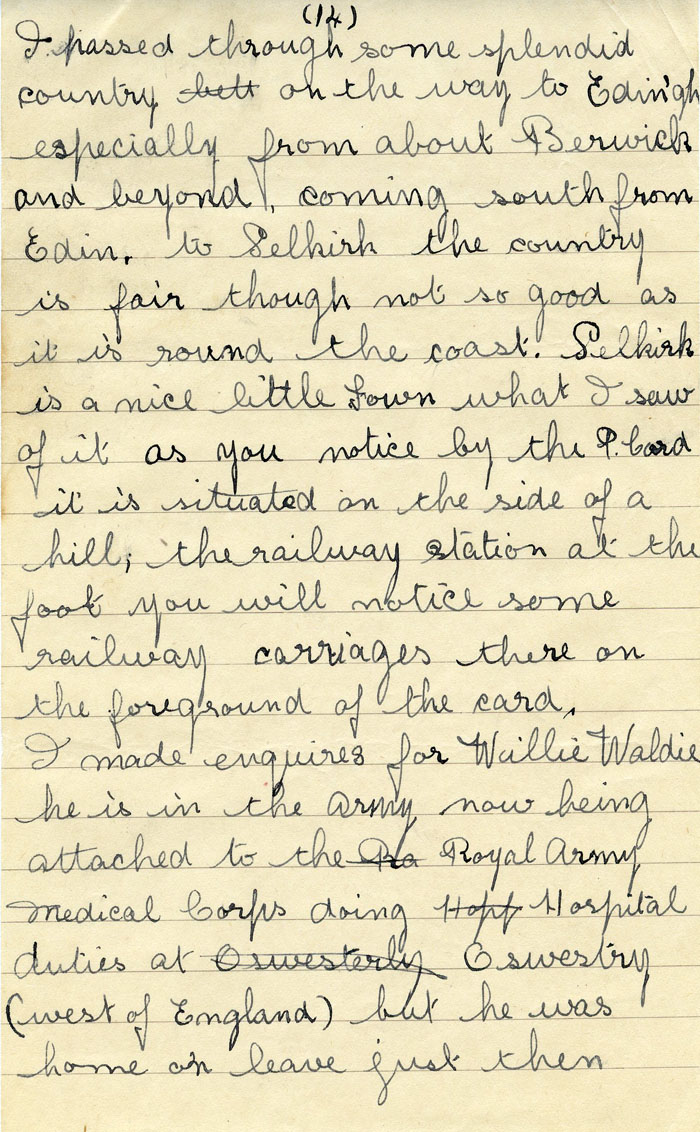 (14)
I passed through some splendid
country butt on the way to Edin'gh
especially from about Berwick
and beyond, coming south from
Edin. to Selkirk the country
is fair though not so good as
it is round the coast. Selkirk
is a nice little Town what I saw
of it as you notice by the P. Card
it is situated on the side of a
hill; the railway station at the
foot you will notice some
railway carriages there on
the foreground of the card.
I made enquires for Willie Waldie
he is in the Army now being
attached to the Ra Royal Army
Medical Corps doing Hopp Hospital
duties at Oswesterly Oswestry
(west of England) but he was
home on leave just then